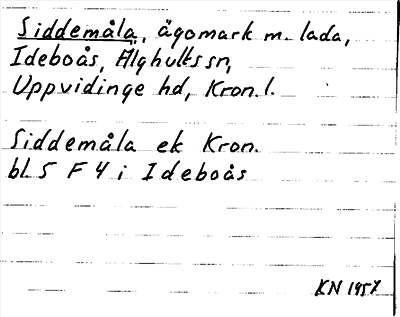 Siddemåla, ägomark m. lada,
Ideboås, Älghults sn,
Uppvidinge hd, Kron. l.
Siddemåla ek Kron.
bl 5 F 4 i Ideboås
KN 1957